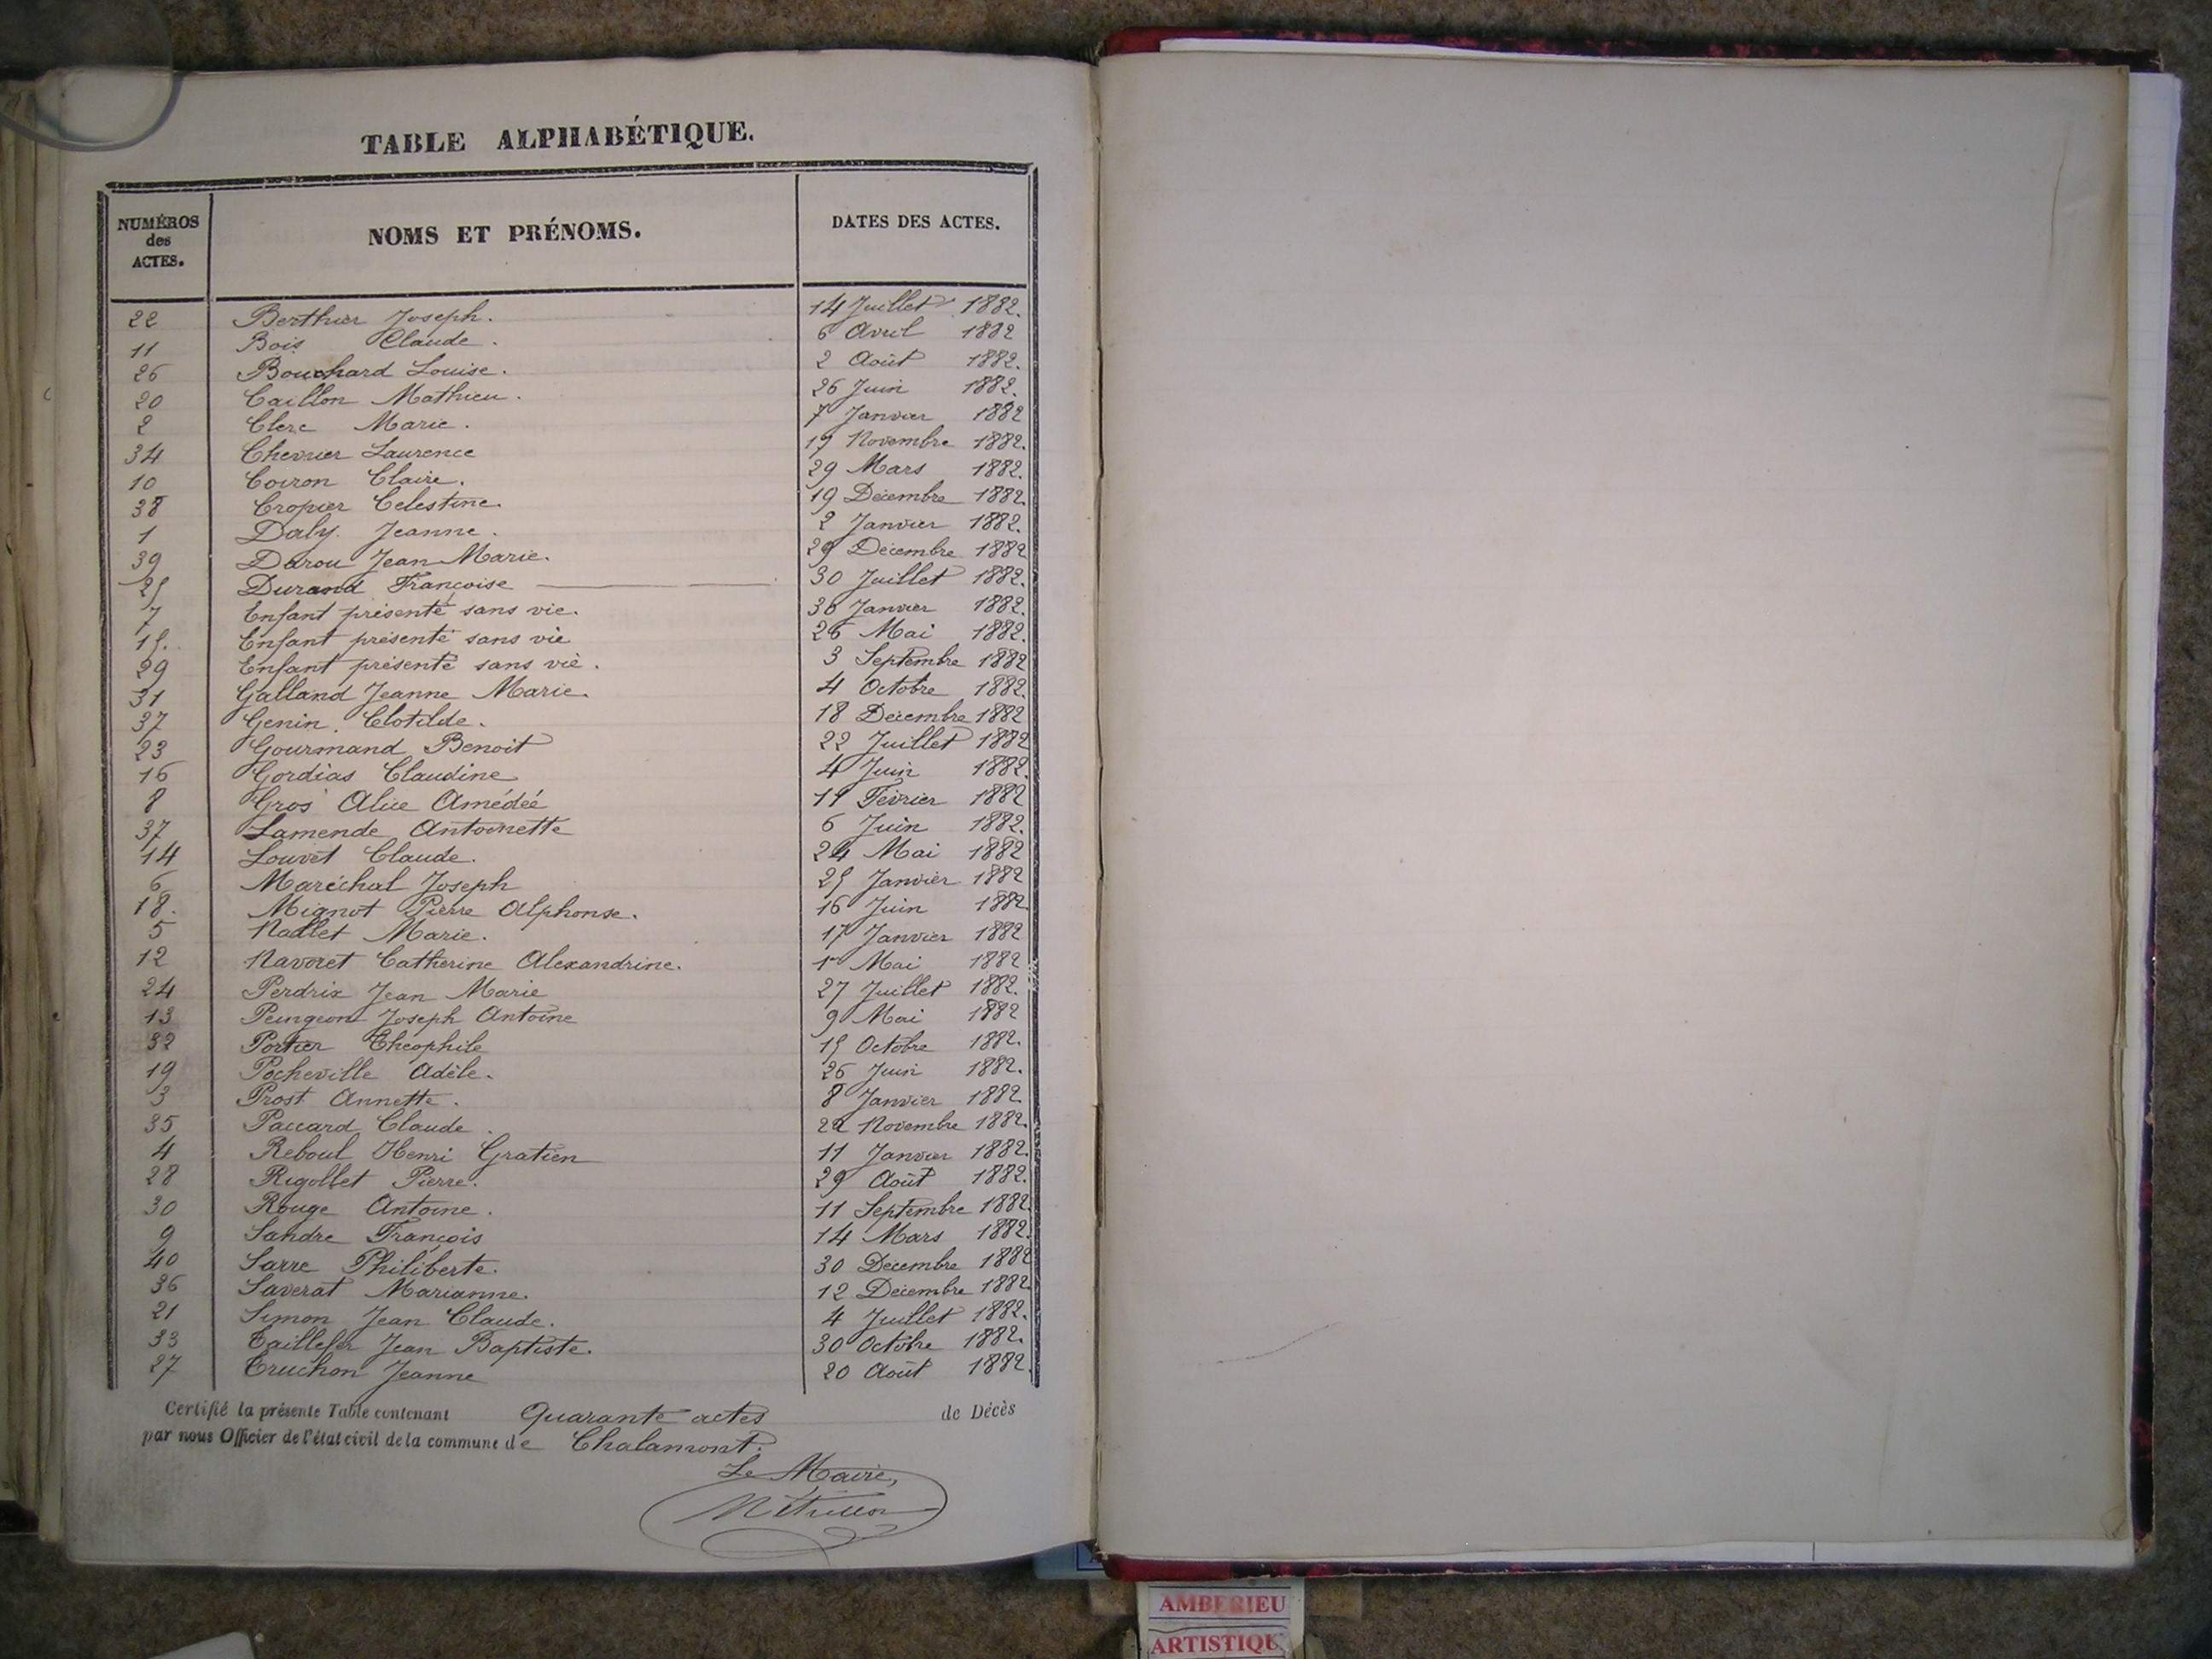 TABLE ALPHABÉTIQUE.
NUMÉROS des ACTES. NOMS ET PRÉNOMS. DATES DES ACTES.
22 Berthier Joseph. 14 Juillet 1882.
11 Bois Claude. 6 Avril 1882
26 Bouchard Louise. 2 Août 1882.
20 Caillon Mathieu. 26 Juin 1882.
2 Clerc Marie. 7 Janvier 1882
34 Chevrier Laurence 19 Novembre 1882.
10 Coiron Claire. 29 Mars 1882.
38 Cropier Celestine. 19 Décembre 1882.
1 Daly. Jeanne. 2 Janvier 1882.
39 Darou Jean Marie. 29 Décembre 1882
25 Durand Françoise 30 Juillet 1882.
7 Enfant présenté sans vie. 30 Janvier 1882.
15. Enfant présenté sans vie 26 Mai 1882.
29 Enfant présenté sans vie. 3 Septembre 1882
31 Galland Jeanne Marie. 4 Octobre 1882.
37 Genin. Clotilde. 18 Décembre 1882
23 Gourmand Benoit 22 Juillet 1882
16 Gordias Claudine 4 Juin 1882.
8 Gros Alice Amédéé 11 Février 1882
37 Lamende Antoinette 6 Juin 1882.
14 Louvet Claude. 24 Mai 1882
6 Maréchal Joseph 25 Janvier 1882
18. Mignot Pierre Alphonse. 16 Juin 1882.
5 Nallet Marie. 17 Janvier 1882
12 Navoret Catherine Alexandrine. 1er Mai 1882
24 Perdrix Jean Marie 27 Juillet 1882.
13 Peingeon Joseph Antoine 9 Mai 1882
32 Portier Théophile 15 Octobre 1882.
19 Pocheville Adèle. 26 Juin 1882.
3 Prost Annette. 8 Janvier 1882.
35 Paccard Claude. 22 Novembre 1882.
4 Reboul Henri Gratien 11 Janvier 1882.
28 Rigollet Pierre. 29 Août 1882.
30 Rouge Antoine. 11 Septembre 1882.
9 Sandre François 14 Mars 1882.
40 Sarre Philiberte. 30 Décembre 1882
36 Saverat Marianne. 12 Décembre 1882.
21 Simon Jean Claude. 4 Juillet 1882.
33 Taillefer Jean Baptiste. 30 Octobre 1882.
27 Truchon Jeanne 20 Août 1882.
Certifié la présente Table contenant Quarante actes de Décès
par nous Officier de l'état civil de la commune de Chalamont.
Le Maire,
AMBERIEU
ARTISTIQU